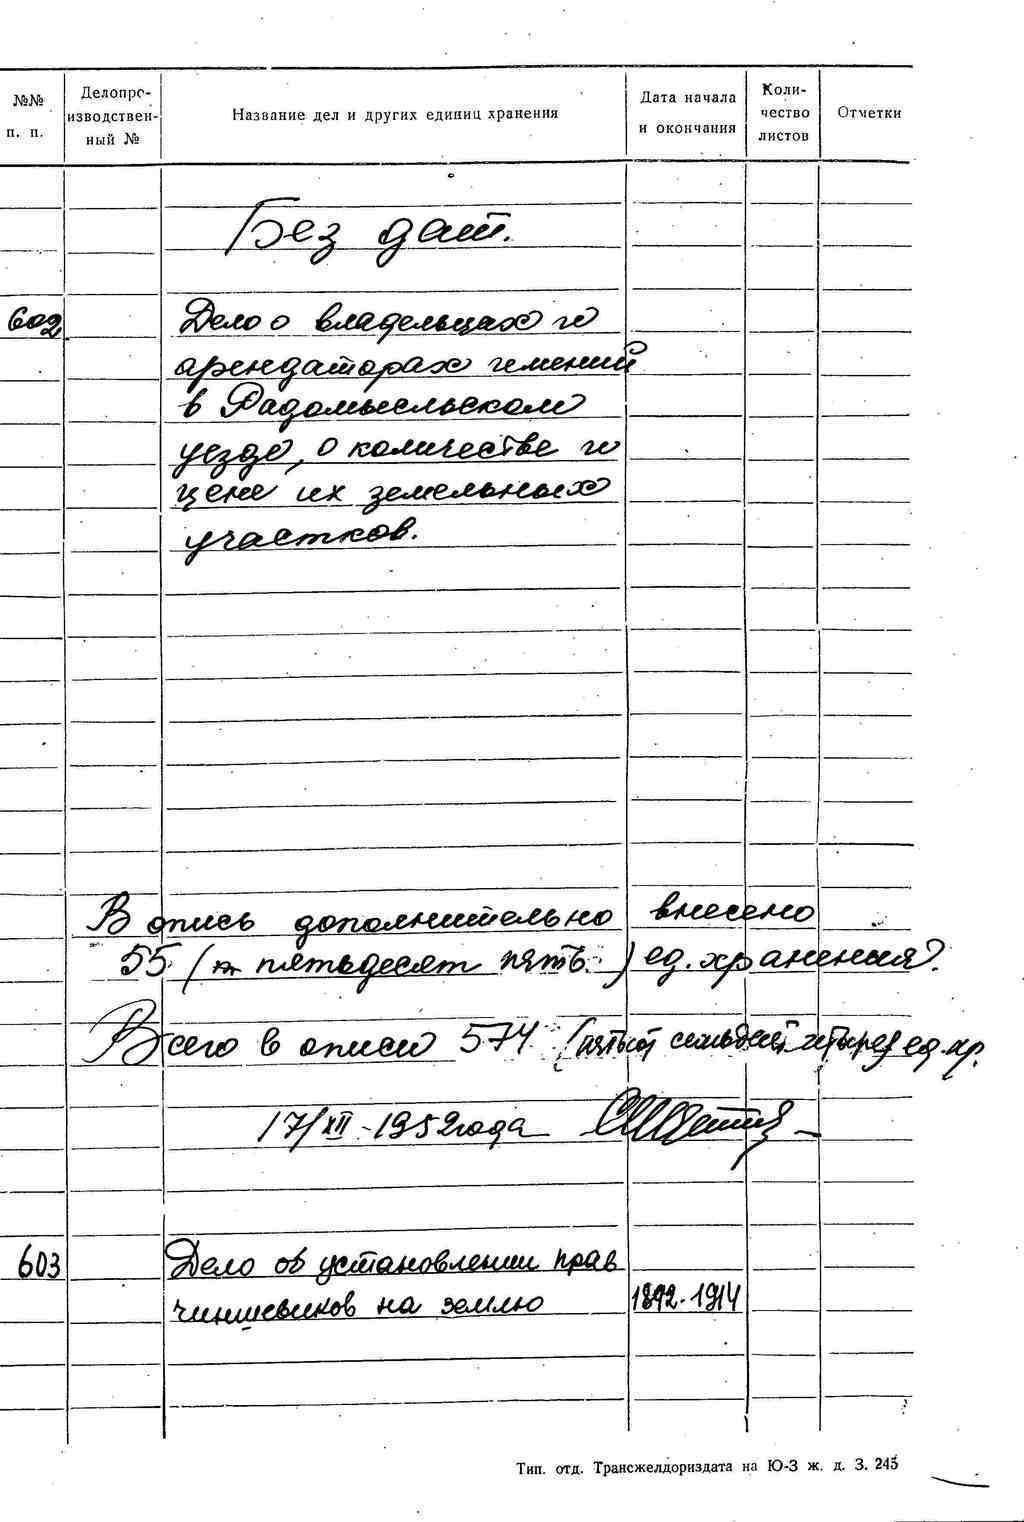 №№ п. п.
Делопро-
изводствен-
ный №
Название дел и других единиц хранения
Дата начала
и окончания
Коли-
чество
листов
Отметки
Без дат.
602 Дело о владельцах и
арендаторах имений
в Радомысльском
уезде, о количестве и
цене их земельных
участков.
В опись дополнительно внесено
55 (пятьдесят пять) ед. хранения.
Всего в описи 574 (пятьсот семьдесят четыре) ед. хр.
17/XII-1952 года
603 Дело об установлении прав
чиншевиков на землю 1892-1914
Тип. отд. Трансжелдориздата на Ю-З ж. д. З. 245